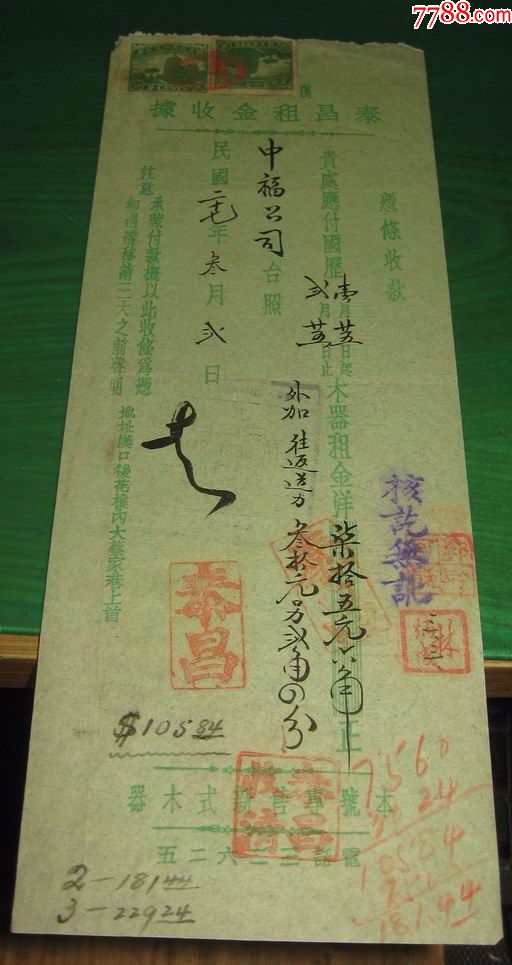 7788.com
中国收藏热线
泰昌租金收據
憑條收款
貴處應付國歷壹月廿五日起
弍月廿五日止
木器租金洋柒拾五元六角正
外加往返送力叁拾元另弍角四分
中福公司台照
民國二十七年叁月弍日
注意
承蒙付款概以此收條為憑
如遇遷移請三天之前聲明
地址漢口後花樓內大蔡家巷上首
核訖無訛
泰昌
$105.84
本號專售新式木器
電話二三六二五
7560
24
10584
7560
181.44
2-18144
3-22924